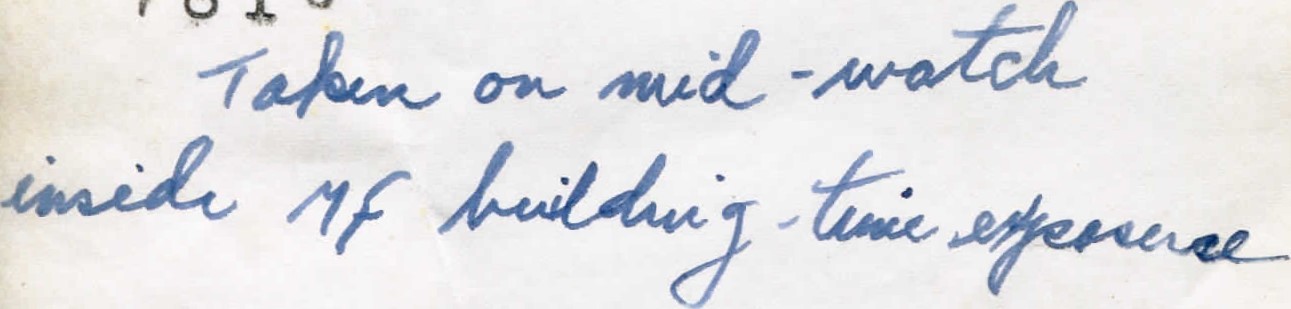 Taken on mid-watch
inside MF building - time exposure